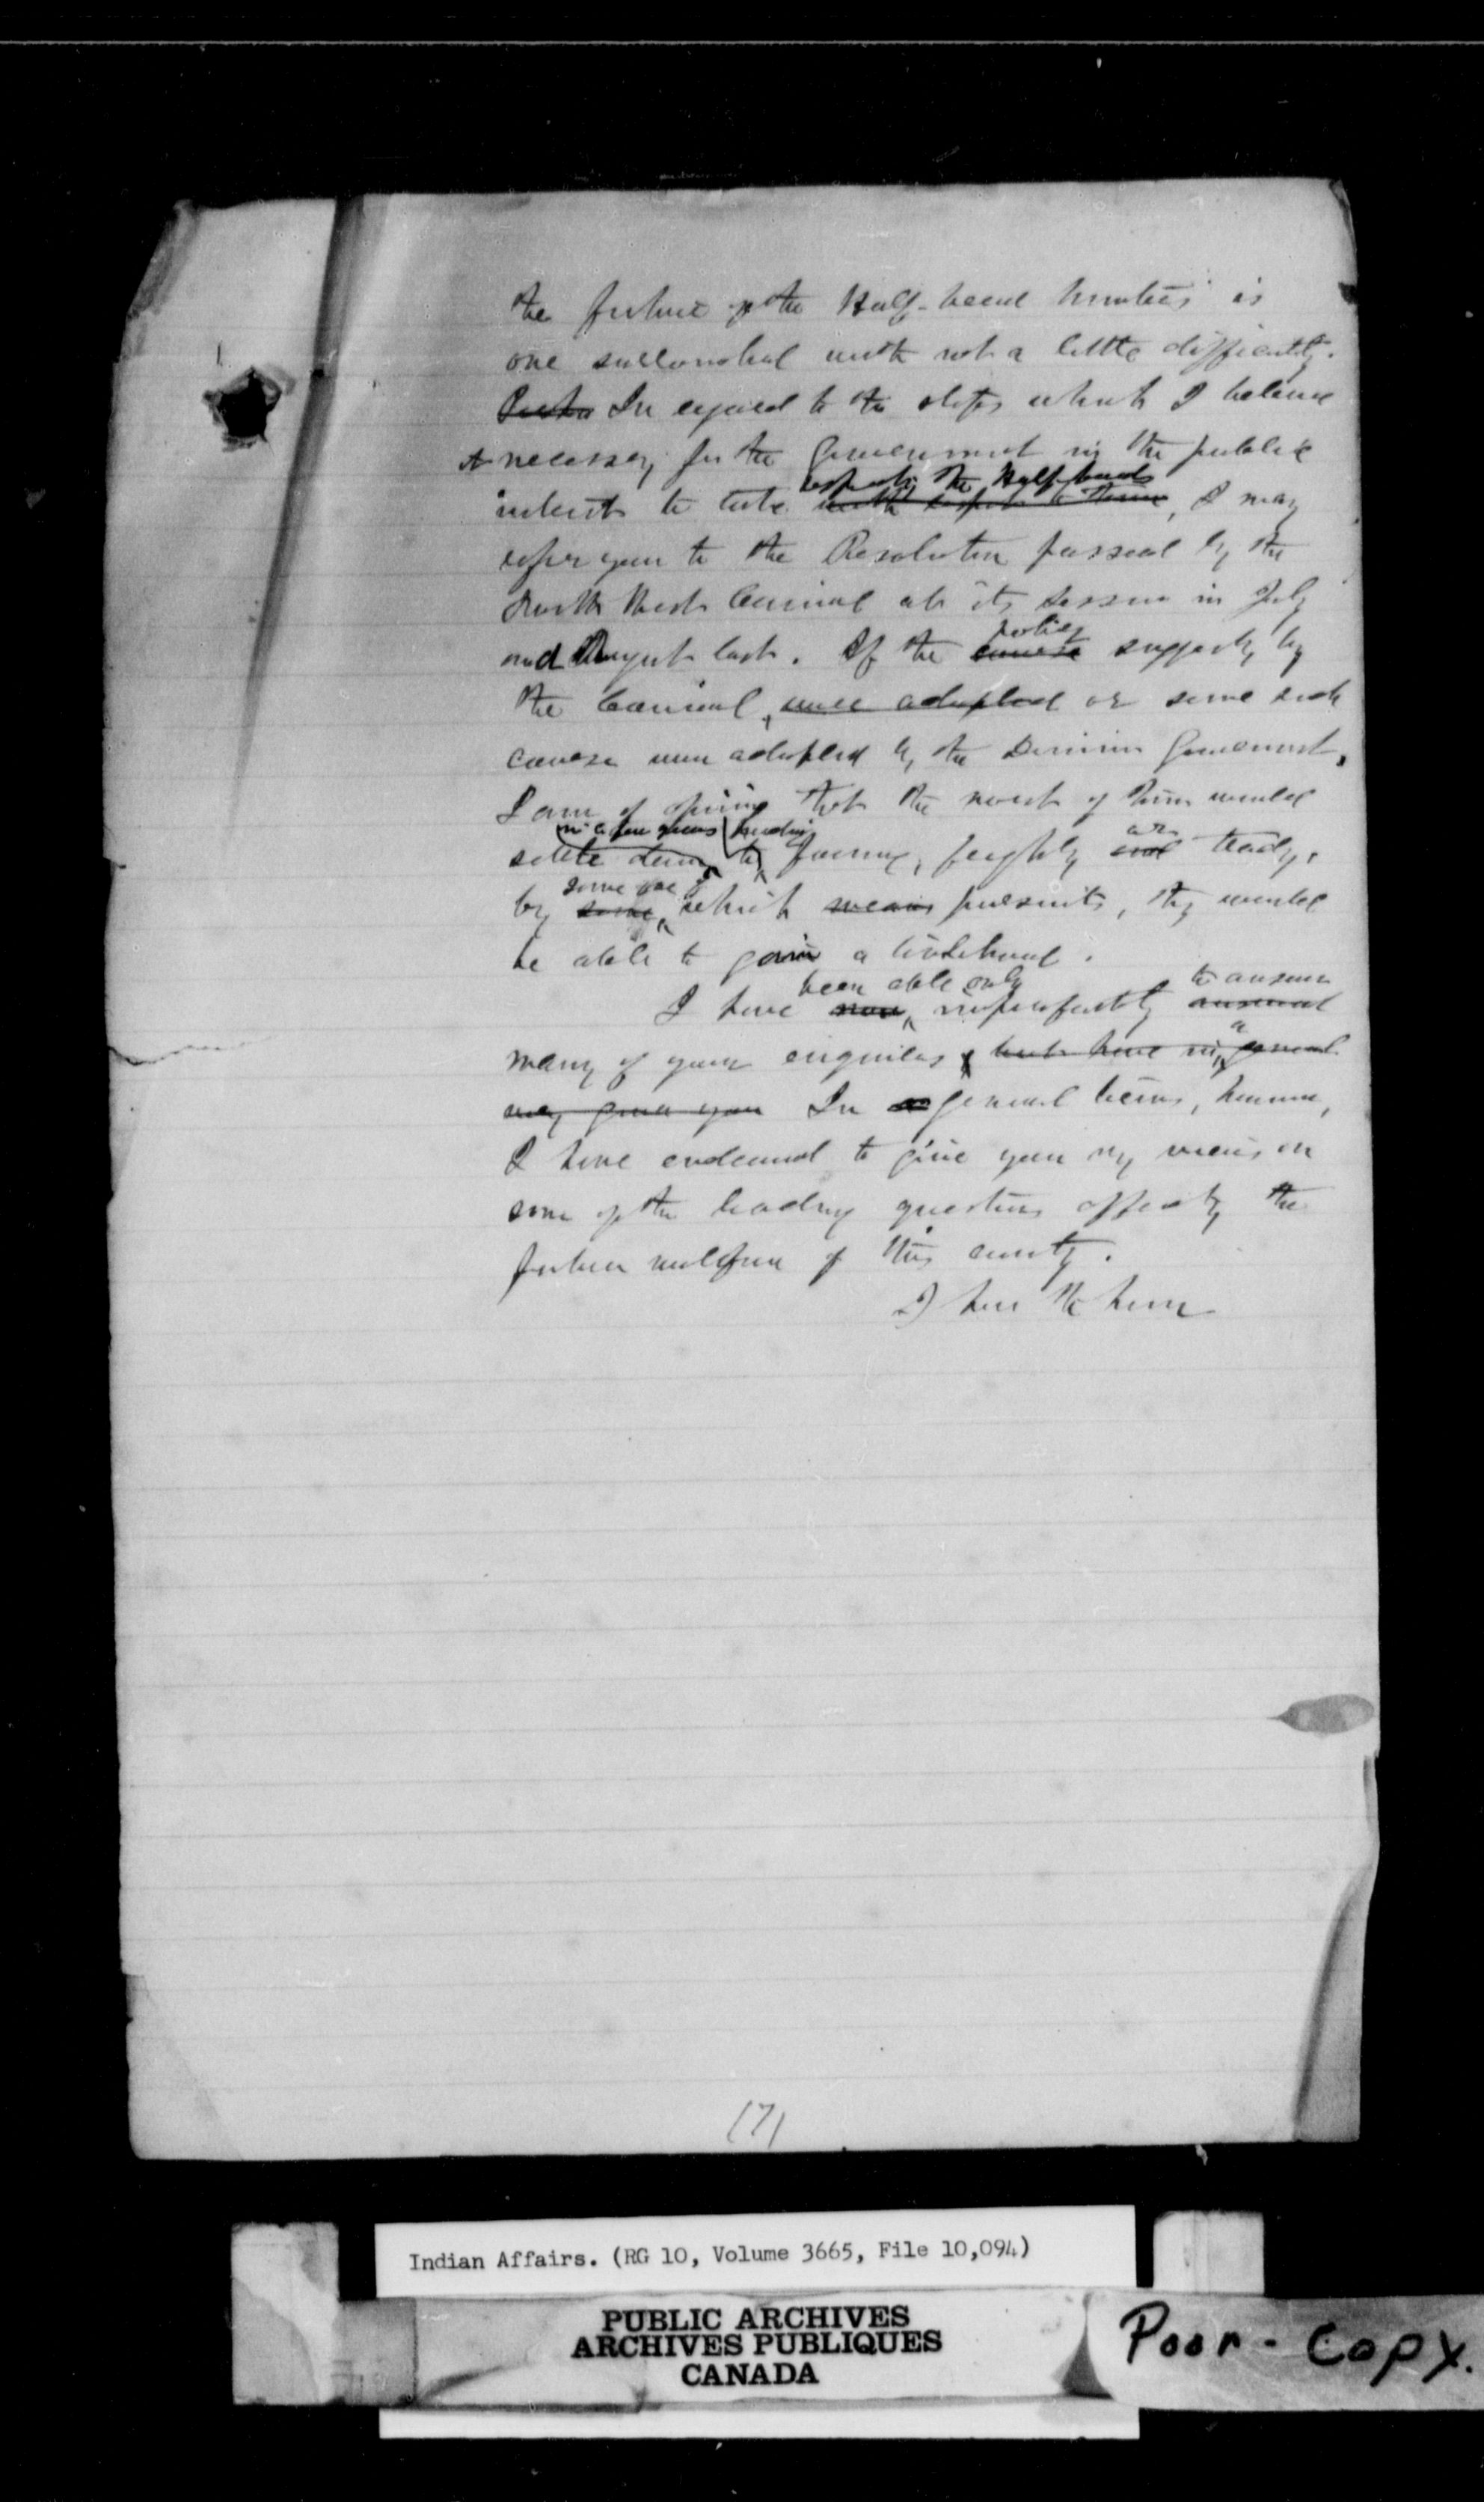 the future of the Half-breed hunters is
one surrounded with not a little difficulty.
In regard to the steps which I believe
necessary for the Government in the public
respecting the Half-breeds
interest to take with respect to them, I may
refer you to the Resolution passed by the
North West Council at its session in July
policy
and August last. If the course suggested by
the Council, were adopted or some such
course were adopted by the Dominion Government,
I am of opinion that the most of them would
in a few years
settle down to farming, freighting and trading,
some one of
by some which means pursuits, they would
be able to gain a livelihood.
been able only to answer
I have now imperfectly answered
many of your enquiries but have in a general
way given you In general terms, however,
I have endeavoured to give you my views on
some of the leading questions affecting the
future welfare of this country.
I have the honor
(7)
Indian Affairs. (RG 10, Volume 3665, File 10,094)
PUBLIC ARCHIVES
ARCHIVES PUBLIQUES
CANADA
Poor - Copy.